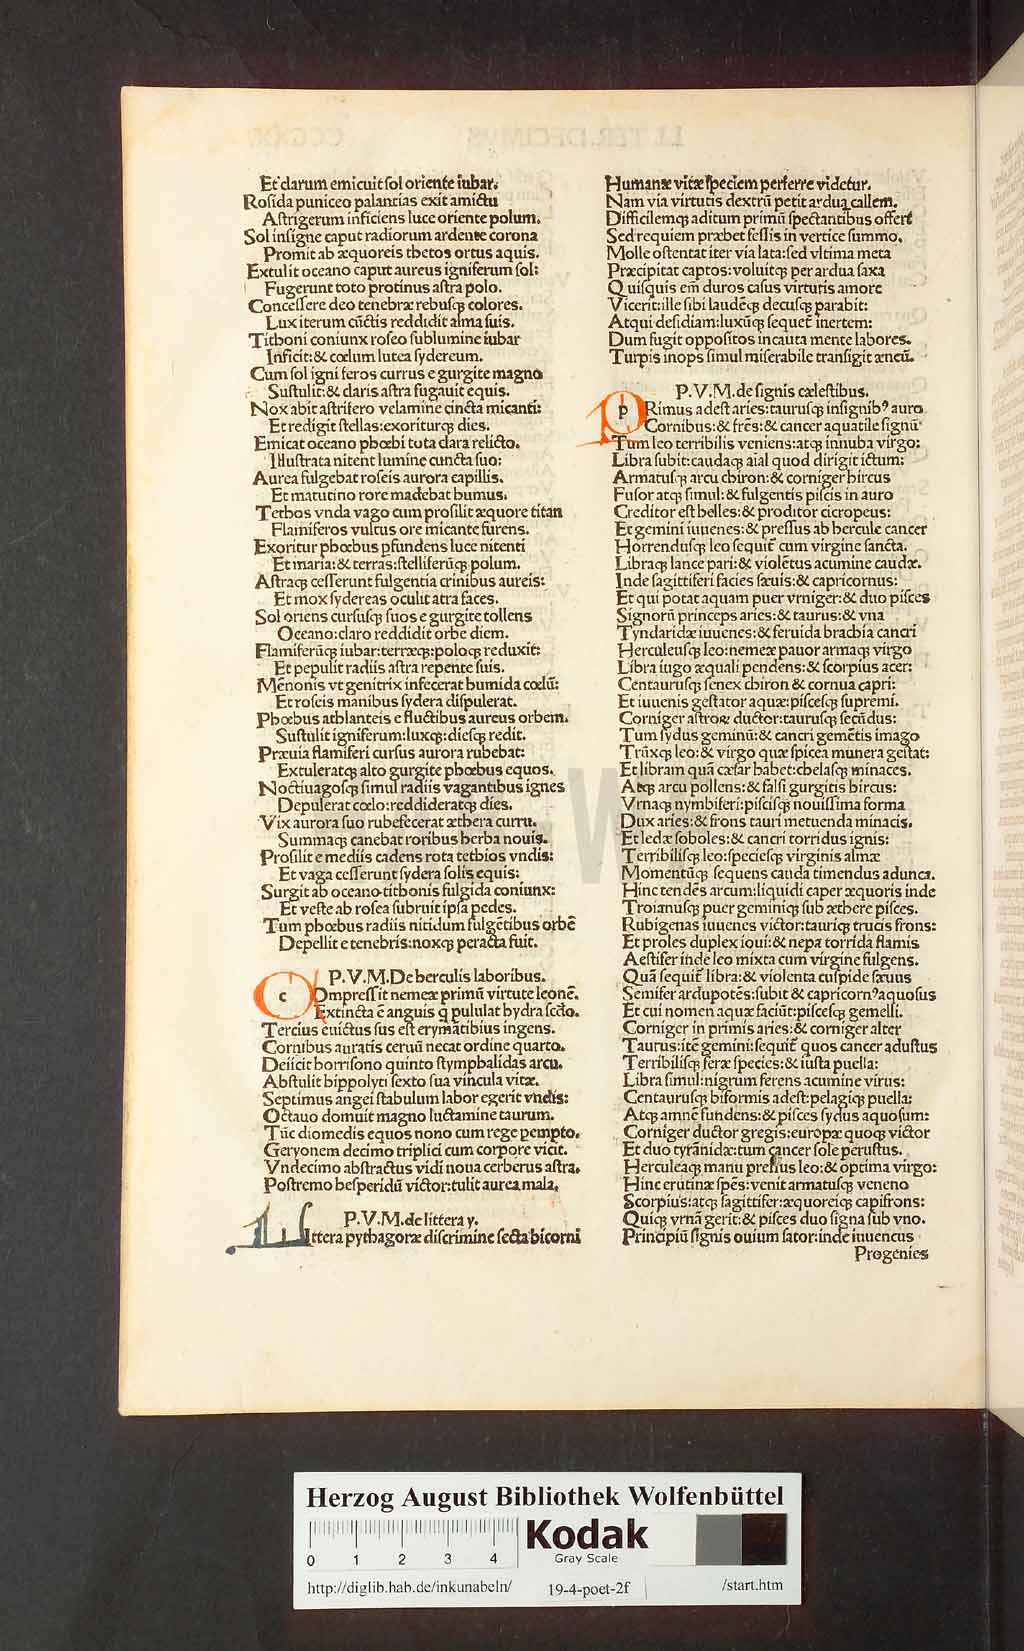 Et clarum emicuit sol oriente iubar.
Rosida puniceo palantias exit amictu
Astrigerum inficiens luce oriente polum.
Sol insigne caput radiorum ardente corona
Promit ab æquoreis thetos ortus aquis.
Extulit oceano caput aureus igniferum sol:
Fugerunt toto protinus astra polo.
Concessere deo tenebræ rebusqꝫ colores.
Lux iterum cūctis reddidit alma suis.
Tithoni coniunx roseo sublumine iubar
Inficit:& cœlum lutea sydereum.
Cum sol igni feros currus e gurgite magno
Sustulit:& claris astra fugauit equis.
Nox abit astrifero velamine cincta micanti:
Et redigit stellas:exoriturqꝫ dies.
Emicat oceano phœbi tota clara relicto.
Illustrata nitent lumine cuncta suo:
Aurea fulgebat roseis aurora capillis.
Et matutino rore madebat humus.
Tethos vnda vago cum prosilit æquore titan
Flamiferos vultus ore micante furens.
Exoritur phœbus pfundens luce nitenti
Et maria:& terras:stelliferūqꝫ polum.
Astraqꝫ cesserunt fulgentia crinibus aureis:
Et mox sydereas oculit atra faces.
Sol oriens cursusqꝫ suos e gurgite tollens
Oceano:claro reddidit orbe diem.
Flamiferūqꝫ iubar:terræqꝫ:poloqꝫ reduxit:
Et pepulit radiis astra repente suis.
Mēnonis vt genitrix infecerat humida cœlū:
Et roseis manibus sydera dispulerat.
Phœbus athlanteis e fluctibus aureus orbem.
Sustulit igniferum:luxqꝫ:diesqꝫ redit.
Præuia flamiferi cursus aurora rubebat:
Extuleratqꝫ alto gurgite phœbus equos.
Noctiuagosqꝫ simul radiis vagantibus ignes
Depulerat cœlo:reddideratqꝫ dies.
Vix aurora suo rubefecerat æthera curru.
Summaqꝫ canebat roribus herba nouis.
Prosilit e mediis cadens rota tethios vndis:
Et vaga cesserunt sydera solis equis:
Surgit ab oceano tithonis fulgida coniunx:
Et veste ab rosea subruit ipsa pedes.
Tum phœbus radiis nitidum fulgētibus orbē
Depellit e tenebris:noxqꝫ peracta fuit.
P.V.M.De herculis laboribus.
COmpressit nemeæ primū virtute leonē.
Extincta ē anguis q̄ pululat hydra secto.
Tercius euictus sus est erymathius ingens.
Cornibus auratis ceruū necat ordine quarto.
Deiicit horrisono quinto stymphalidas arcu.
Abstulit hippolyti sexto sua vincula vitæ.
Septimus angei stabulum labor egerit vndis:
Octauo domuit magno luctamine taurum.
Tūc diomedis equos nono cum rege pempto.
Geryonem decimo triplici cum corpore vicit.
Vndecimo abstractus vidi noua cerberus astra.
Postremo hesperidū victor:tulit aurea mala.
P.V.M.de littera y.
LIttera pythagoræ discrimine secta bicorni
Humanæ vitæ speciem perferre videtur.
Nam via virtutis dextrū petit ardua callem.
Difficilemqꝫ aditum primū spectantibus offert
Sed requiem præbet fessis in vertice summo.
Molle ostentat iter via lata:sed vltima meta
Præcipitat captos:voluitqꝫ per ardua saxa
Quisquis em̄ duros casus virtutis amore
Vicerit:ille sibi laudēqꝫ decusqꝫ parabit:
Atqui desidiam:luxūqꝫ sequet̄ inertem:
Dum fugit oppositos incauta mente labores.
Turpis inops simul miserabile transigit æuū.
P.V.M.de signis cælestibus.
PRimus adest aries:taurusqꝫ insignibꝰ auro
Cornibus:& frēs:& cancer aquatile signū
Tum leo terribilis veniens:atqꝫ innuba virgo:
Libra subit:caudaqꝫ aīal quod dirigit ictum:
Armatusqꝫ arcu chiron:& corniger hircus
Fusor atqꝫ simul:& fulgentis piscis in auro
Creditor est helles:& proditor cicropeus:
Et gemini iuuenes:& pressus ab hercule cancer
Horrendusqꝫ leo sequit̄ cum virgine sancta.
Libraqꝫ lance pari:& violētus acumine caudæ.
Inde sagittiferi facies sæuis:& capricornus:
Et qui potat aquam puer vrniger:& duo pisces
Signorū princeps aries:& taurus:& vna
Tyndaridæ iuuenes:& feruida brachia cancri
Herculeusqꝫ leo:nemeæ pauor armaqꝫ virgo
Libra iugo æquali pendens:& scorpius acer:
Centaurusqꝫ senex chiron & cornua capri:
Et iuuenis gestator aquæ:piscesqꝫ supremi.
Corniger astroꝝ ductor:taurusqꝫ secūdus:
Tum sydus geminū:& cancri gemētis imago
Trūxqꝫ leo:& virgo quæ spicea munera gestat:
Et libram quā cæsar habet:chelasqꝫ minaces.
Atqꝫ arcu pollens:& falsi gurgitis hircus:
Vrnaqꝫ nymbiferi:piscisqꝫ nouissima forma
Dux aries:& frons tauri metuenda minacis.
Et ledæ soboles:& cancri torridus ignis:
Terribilisqꝫ leo:speciesqꝫ virginis almæ
Momentūqꝫ sequens cauda timendus adunca.
Hinc tendēs arcum:liquidi caper æquoris inde
Troianusqꝫ puer geminiqꝫ sub æthere pisces.
Rubigenas iuuenes victor:tauriqꝫ trucis frons:
Et proles duplex ioui:& nepa torrida flamis
Aestifer inde leo mixta cum virgine fulgens.
Quā sequit̄ libra:& violenta cuspide sæuus
Semifer ardupotēs:subit & capricornꝰ aquosus
Et cui nomen aquæ faciūt:piscesqꝫ gemelli.
Corniger in primis aries:& corniger alter
Taurus:itē gemini:sequit̄ quos cancer adustus
Terribilisqꝫ feræ species:& iusta puella:
Libra simul:nigrum ferens acumine virus:
Centaurusqꝫ biformis adest:pelagiqꝫ puella:
Atqꝫ amnē fundens:& pisces sydus aquosum:
Corniger ductor gregis:europæ quoqꝫ victor
Et duo tyrānidæ:tum cancer sole perustus.
Herculeaqꝫ manu pressus leo:& optima virgo:
Hinc erutinæ spēs:venit armatusqꝫ veneno
Scorpius:atqꝫ sagittifer:æquoreiqꝫ capifrons:
Quiqꝫ vrnā gerit:& pisces duo signa sub vno.
Principiū signis ouium sator:inde iuuencus
Progenies
Herzog August Bibliothek Wolfenbüttel
0 1 2 3 4
Kodak
Gray Scale
http://diglib.hab.de/inkunabeln/ 19-4-poet-2f /start.htm